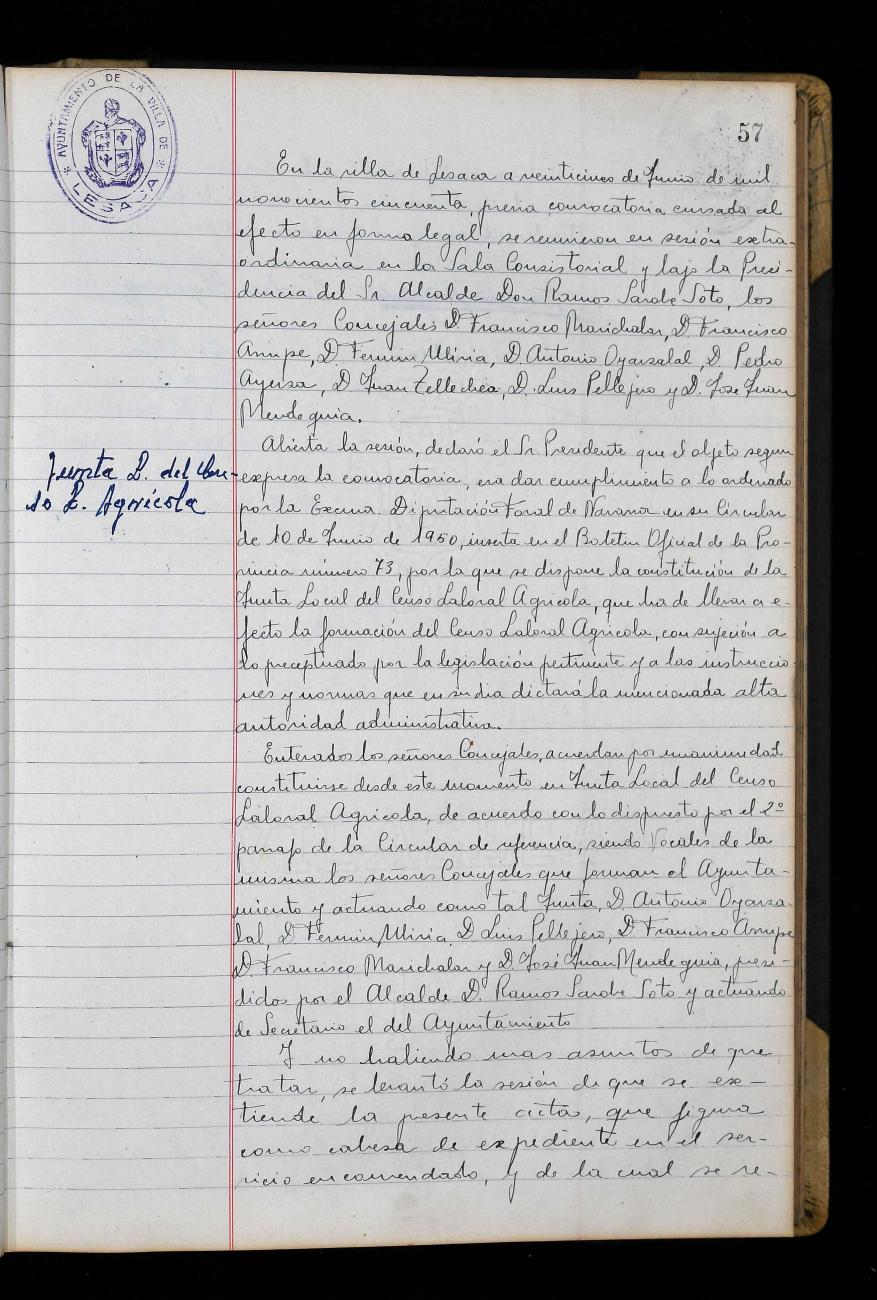 AYUNTAMIENTO DE LA VILLA DE
* LESACA *
57
En la villa de Lesaca a veinticinco de Junio de mil
novecientos cincuenta, previa convocatoria cursada al
efecto en forma legal, se reunieron en sesión extra-
ordinaria en la Sala Consistorial y bajo la Presi-
dencia del Sr. Alcalde Don Ramos Sarobe Soto, los
señores Concejales D. Francisco Marichalar, D. Francisco
Arrupe, D. Fermin Miria, D. Antonio Oyarzabal, D. Pedro
Ayerza, D Juan Tellechea, D. Luis Pellejero y D. José Juan
Mendeguia.
Abierta la sesión, declaró el Sr. Presidente que el objeto segun
Junta L. del Cen-
so L. Agrícola
expresa la convocatoria, era dar cumplimiento a lo ordenado
por la Excma. Diputación Foral de Navarra en su Circular
de 10 de Junio de 1950, inserta en el Boletin Oficial de la Pro-
vincia número 73, por la que se dispone la constitución de la
Junta Local del Censo Laboral Agricola, que ha de llevar a e-
fecto la formación del Censo Laboral Agrícola, con sujeción a
lo preceptuado por la legislación pertinente y a las instruccio-
nes y normas que en su dia dictará la mencionada alta
autoridad administrativa.
Enterados los señores Concejales, acuerdan por unanimidad
constituirse desde este momento en Junta Local del Censo
Laboral Agricola, de acuerdo con lo dispuesto por el 2º
parrafo de la Circular de referencia, siendo Vocales de la
misma los señores Concejales que forman el Ayunta-
miento y actuando como tal Junta, D. Antonio Oyarza-
bal, D Fermin Miria, D. Luis Pellejero, D. Francisco Arrupe
D. Francisco Marichalar y D. José Juan Mendeguia, presi-
didos por el Alcalde D. Ramos Sarobe Soto y actuando
de Secretario el del Ayuntamiento
Y no habiendo mas asuntos de que
tratar, se levantó la sesión de que se ex-
tiende la presente acta, que figura
como cabeza de expediente en el ser-
vicio encomendado, y de la cual se re-